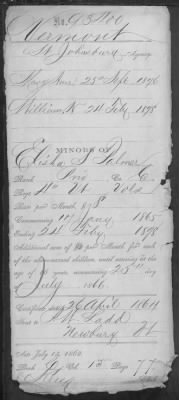 No. 93400
Vermont
St. Johnsbury Agency
Mary Ann 25th Sept 1876
William, R 24 Feby 1878
MINORS OF
Elisha S Palmer
Rank Pri Co G
Regt 11th Vt Vols
Rate per Month $8
Commencing 1st Jany 1865
Ending 24 Feby 1878
Additional sum of $2 per Month for each
of the above named children until arriving at the
age of 16 years, commencing 25th day
of July 1866
Certificate dated 26 April 1864
Sent to
Newbury Vt
Act July 14, 1862
Book Vol. 13 Page 77